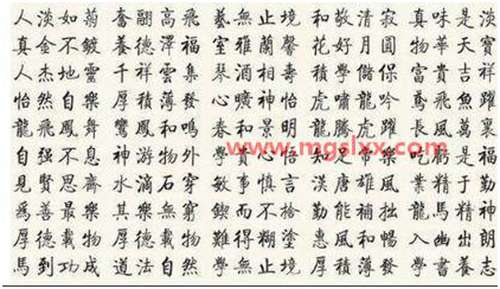 人淡如菊 奮翮高飛 藝無止境 和敬清寂 真味是淡
真金不鍍 養德澤福 室雅蘭馨 花好月圓 物華天寶
人杰地靈 千祥雲集 琴酒相壽 學儲 富貴吉祥
怡然自樂 厚積薄發 心曠神怡 虎嘯龍吟 鳶飛魚躍
龍飛鳳舞 鸞鳳和鳴 春和景明 龍騰虎躍 長風萬裏
自强不息 神游物外 學貴心悟 知足常樂 吃虧是福
見賢思齊 水滴石穿 敏事慎言 漢唐雄風 業精于勤
為善最樂 其樂無窮 鍥而不捨 勤能補拙 龍馬精神
厚德載物 厚德載物 難得糊塗 惠風和暢 入幽出朗
馬到功成 道法自然 學無止境 厚積薄發 學書養志
www.mgslxx.com